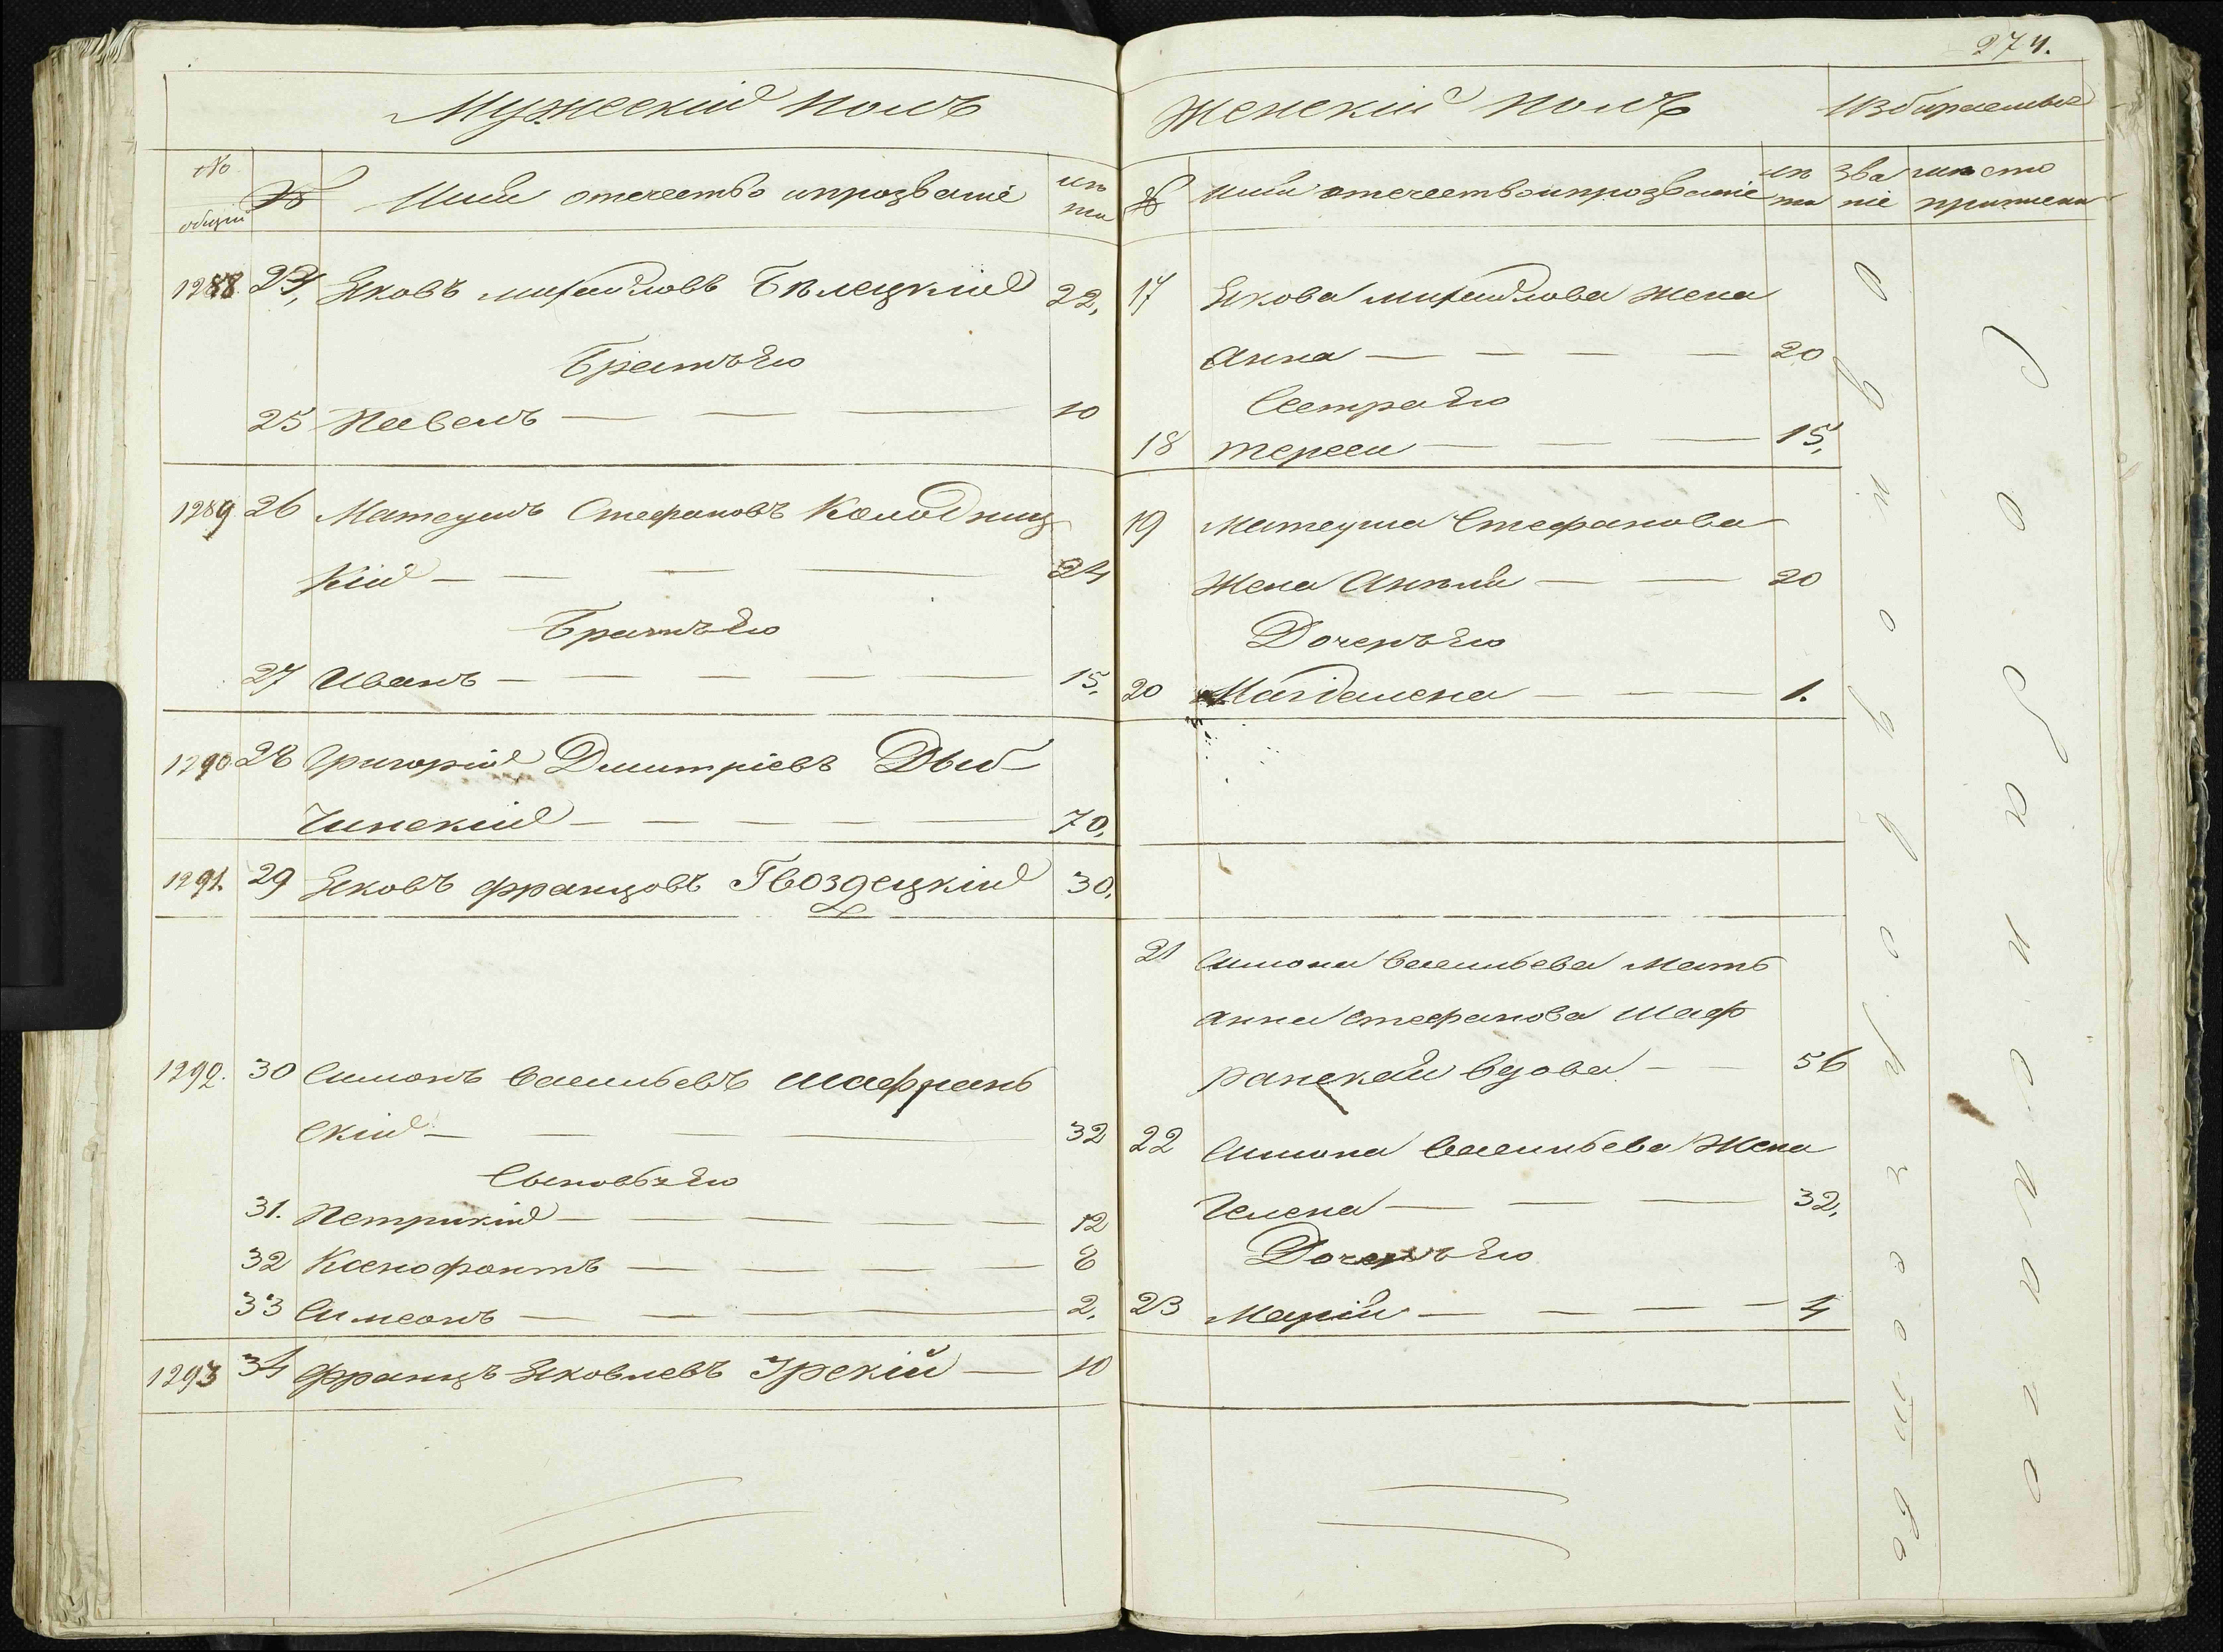 274.
Мужескій полъ
№ общій
№
Имя отечество и прозваніе
лѣта
1288. 24, Яковъ Михайловъ Бѣлецкій 22,
Братъ Его
25 Павелъ — — — 10
1289 26 Матеушъ Стефановъ Колодниц
кій — — — — 24
Братъ Его
27 Иванъ — — — — 15,
1290 28 Григорій Дмитріевъ Дыб
чинскій — — — — 70,
1291. 29 Яковъ францовъ Гвоздецкій 30,
1292. 30 Симонъ Васильевъ Шафрань
скій — — — — 32
Сыновья Его
31. Петрикій — — — — 12
32 Ксенофонтъ — — — — 8
33 Симеонъ — — — 2,
1293 34 францъ Яковлевъ Ірскій — 10
Женскій полъ
Избираемыя
№
Имя отечество и прозваніе
лѣта
званіе
мѣсто
17 Якова Михайлова жена
Анна — — — — 20
Сестра Его
18 тереса — — — 15,
19 Матеуша Стефанова
Жена Анѣля — — 20
Дочерь Его
20 Магдалена — — 1.
21 Симона Васильева Мать
Анна Стефанова Шаф
ранская вдова — — 56
22 Симона Васильева Жена
Гелена — — — 32,
Дочерь Его
23 Марія — — — — 4